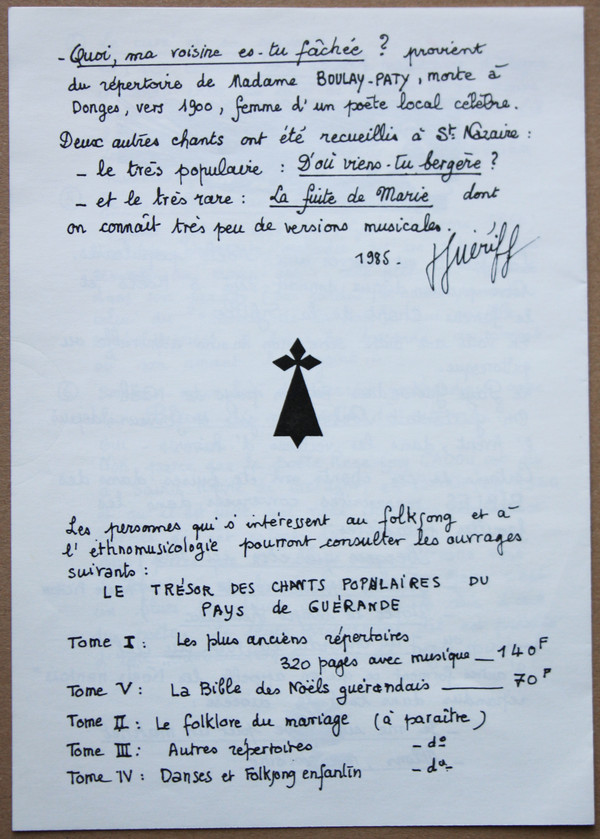 - Quoi, ma voisine es-tu fâchée ? provient
du répertoire de Madame BOULAY-PATY, morte à
Donges, vers 1900, femme d'un poète local célèbre.
Deux autres chants ont été recueillis à St Nazaire :
- le très populaire : D'où viens-tu bergère ?
- et le très rare : La fuite de Marie dont
on connaît très peu de versions musicales.
1985. FGuériff
Les personnes qui s'intéressent au folksong et à
l'éthnomusicologie pourront consulter les ouvrages
suivants :
LE TRÉSOR DES CHANTS POPULAIRES DU
PAYS de GUÉRANDE
Tome I : Les plus anciens répertoires
320 pages avec musique — 140F
Tome V : La Bible des Noëls guérandais — 70F
Tome II : Le folklore du mariage (à paraître)
Tome III : Autres répertoires - do
Tome IV : Danses et Folksong enfantin - do